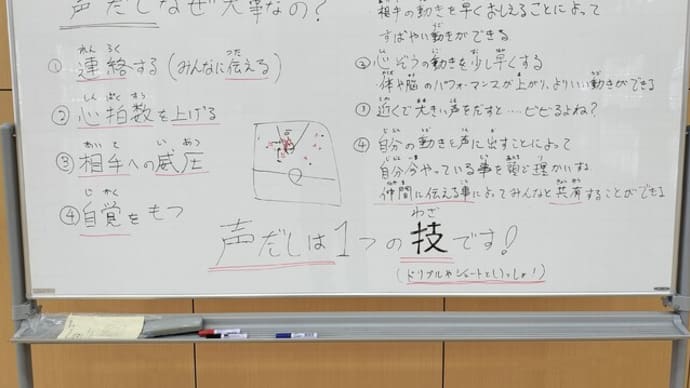 声だしなぜ大事なの？
① 連絡する（みんなに伝える）
② 心拍数を上げる
③ 相手への威圧
④ 自覚をもつ
相手の動きを早くおしえることによって
すばやい動きができる
② 心ぞうの動きを少し早くする
体や脳のパフォーマンスが上がり、よりいい動きができる
③ 近くで大きい声をだすと…ビビるよね？
④ 自分の動きを声に出すことによって
自分今やっている事を頭で理かいする
仲間に伝える事によってみんなと共有することができる
声だしは1つの技です！
（ドリブルやシュートといっしょ！）